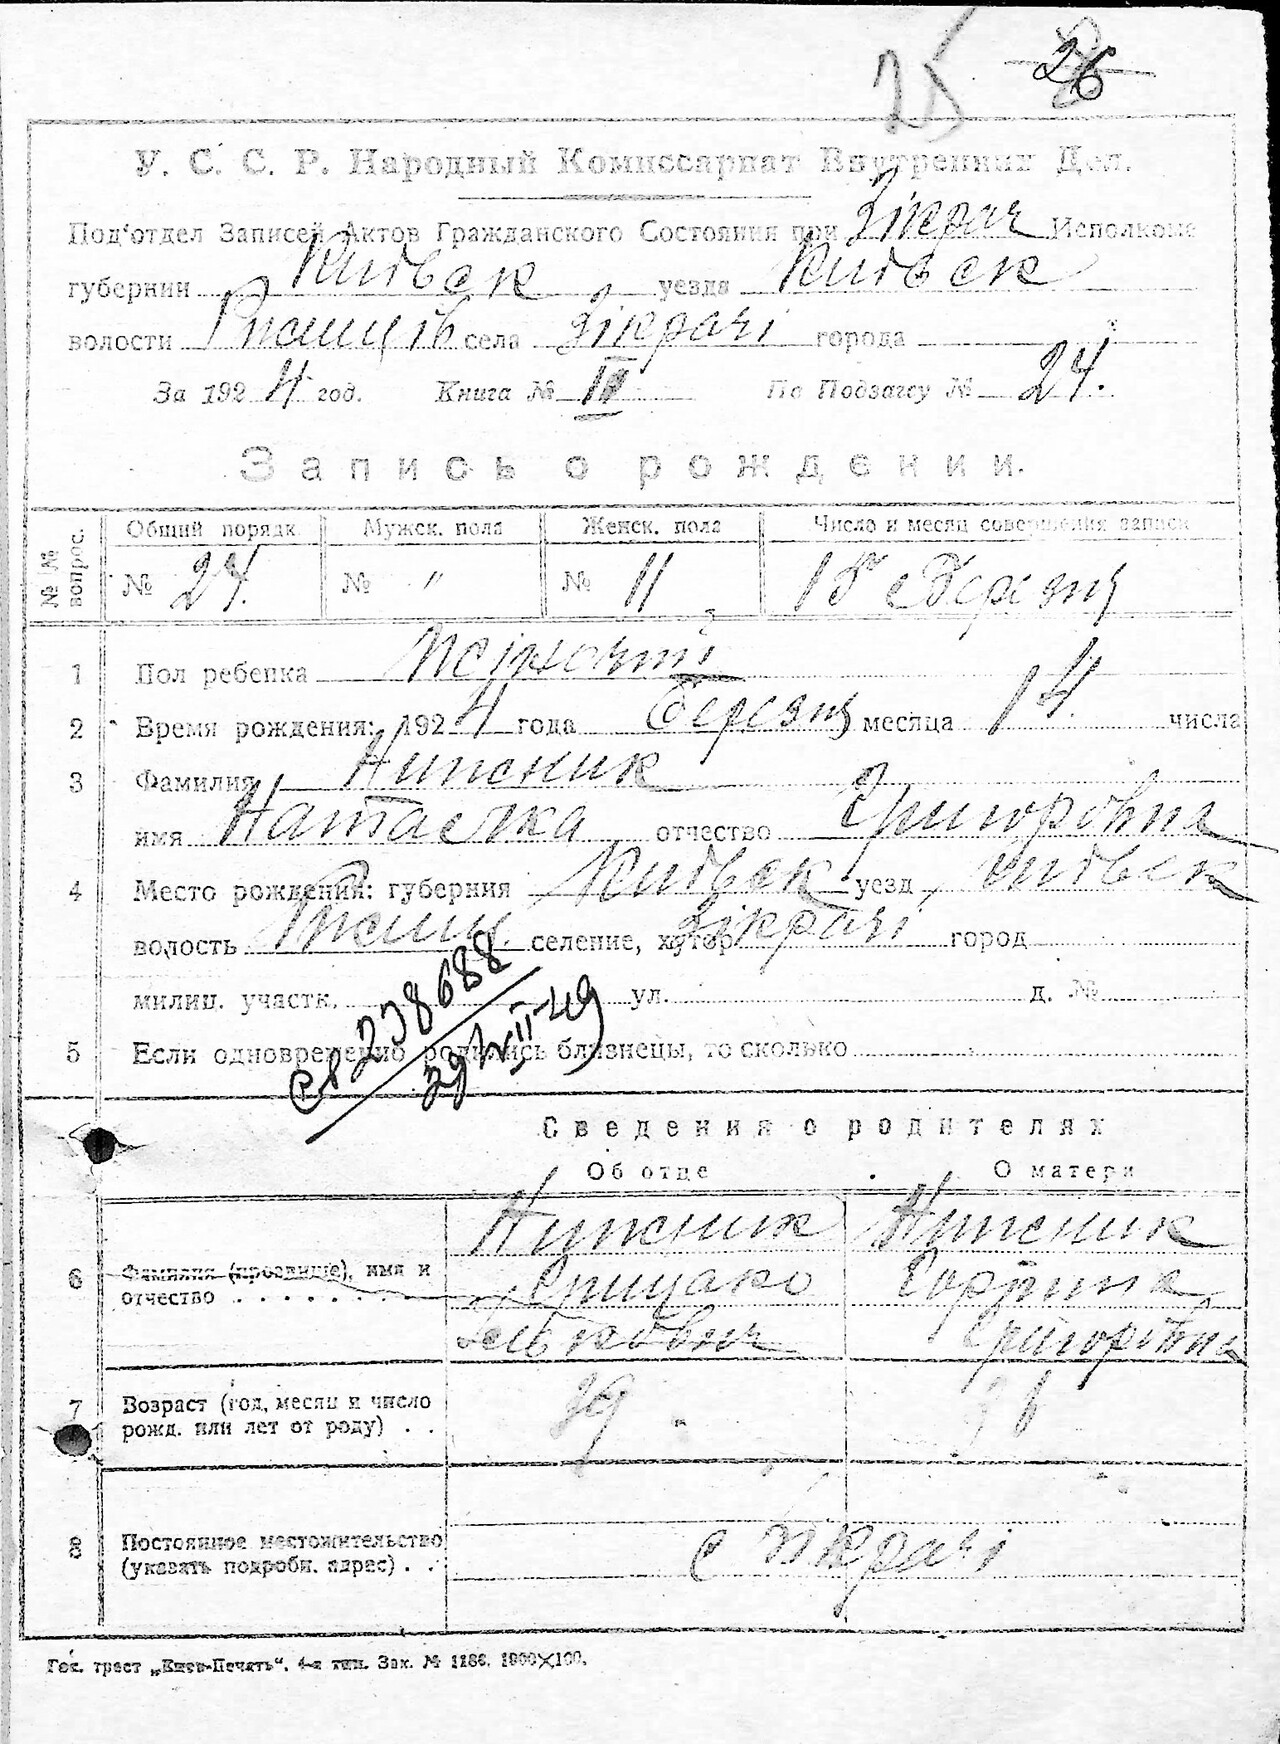 25 26
У. С. С. Р. Народный Комиссариат Внутренних Дел.
Под'отдел Записей Актов Гражданского Состояния при Зікрач Исполкоме
губернии Київск уезда Київск
волости Ржищів села Зікрачі города
За 1924 год. Книга № III По Подзагсу № 24.
Запись о рождении.
№ № вопрос. Общий порядк. Мужск. пола Женск. пола Число и месяц совершения записи
№ 24. № " № 11 15 Березня
1 Пол ребенка Жіночий
2 Время рождения: 1924 года Березня месяца 14 числа
3 Фамилия
имя Наталка отчество Григорівна
4 Место рождения: губерния Київск уезд Київск
волость Ржищ. селение, хутор Зікрачі город
милиц. участк. ул. д. №
5 Если одновременно родились близнецы, то сколько
238688
29/VII-49
Сведения о родителях
Об отце О матери
6 Фамилия (прозвище), имя и
отчество . . . . . . . .
Грицко
Григорівна
7 Возраст (год, месяц и число
рожд. или лет от роду) . . 39 36
8 Постоянное местожительство
(указать подробн. адрес) . . с Зікрачі
Гос. трест „Киев-Печать“. 4-я тип. Зак. № 1186. 1000×100.